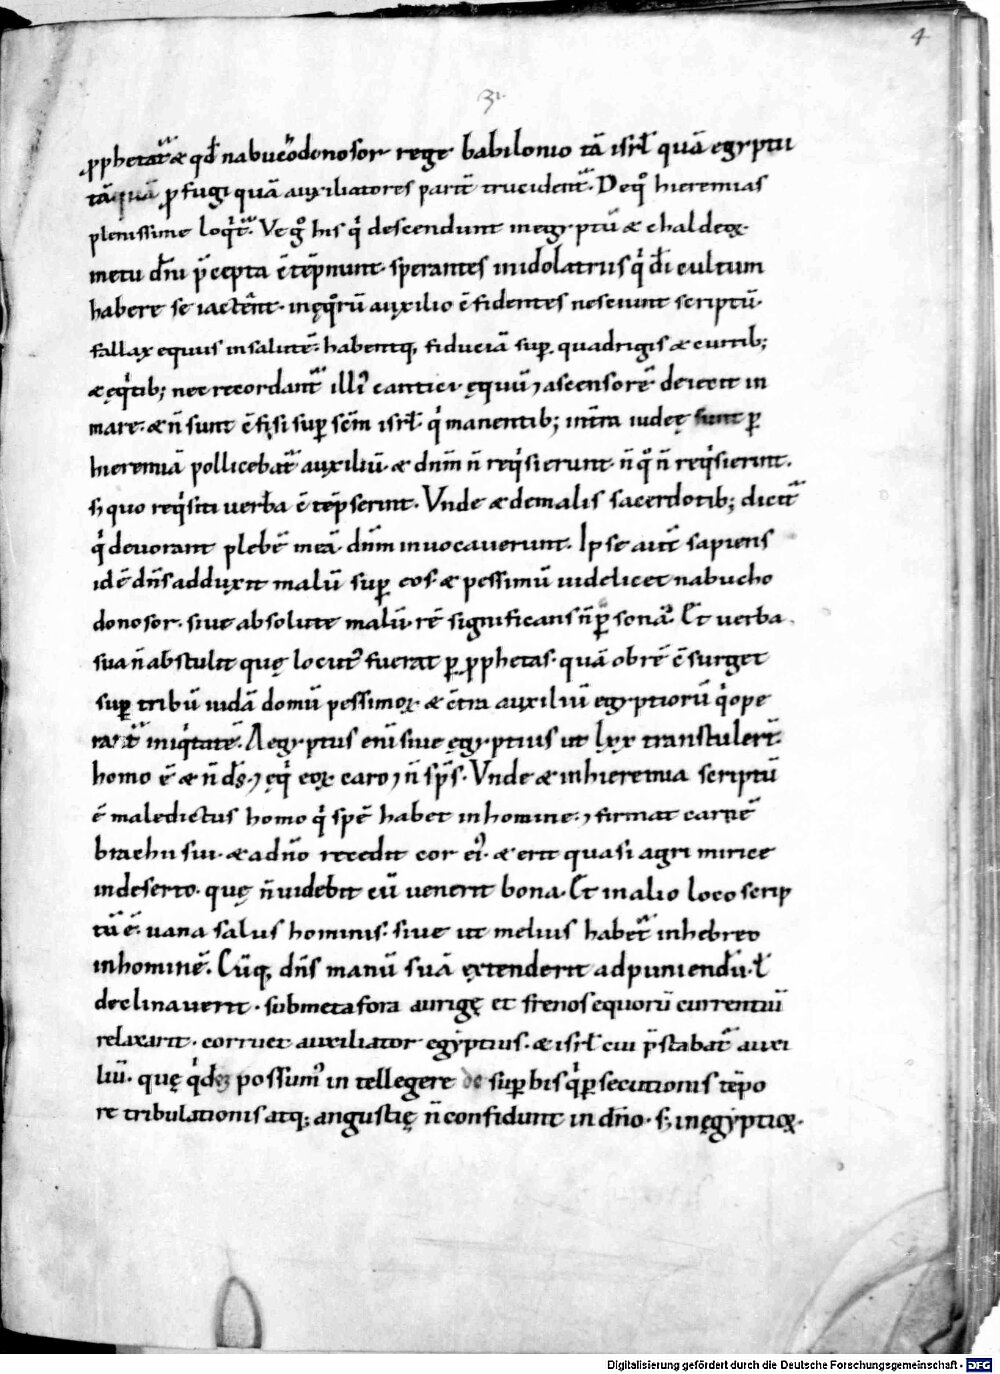 4
31
ꝓphetat᷑ & qđ nabuchodonosor rege babilonio tā isrł quā egyptu
tā quā ꝓfugi quā auxiliatores parit̄ trucident᷑. De qͦ hieremias
plenissime loqͥt᷑. Ve gͦ his qͥ descendunt in egyptū & chaldeoꝝ
metu dn̄i p̄cepta c̄tēpnunt. sperantes in idolatriis qͥ dī cultum
habere se iactent. in equoꝝ auxilio c̄fidentes nesciunt scriptū.
fallax equus in salutē. habentq, fiduciā suꝑ quadrigis & currib;
& eqͥtib; nec recordant᷑ illiꝰ cantici. equū ⁊ ascensorē deiecit in
mare. & n̄ sunt c̄fisi suꝑ sc̄m isrł. qͥ manentib; in t̄ra iudeę ꝑ
hieremiā pollicebat᷑ auxiliū. & dn̄m n̄ reqͥsierunt. n̄ qͦ n̄ reqͥsierint.
s; quo reqͥsiti uerba c̄tēpserint. Vnde & de malis sacerdotib; dicit᷑
qͥ deuorant plebē meā dn̄m inuocauerunt. Ipse aut̄ sapiens
id ē dn̄s adduxit malū suꝑ eos. & pessimū uidelicet nabucho
donosor. siue absolute malū. rē significans n̄ ꝑsonā. Et uerba
sua n̄ abstulit quę locutꝰ fuerat ꝑ ꝓphetas. quā ob rē c̄surget
suꝑ tribū iudā domū pessimoꝝ & c̄tra auxiliū egyptiorū qͥ ope
rant᷑ iniqͥtatē. Aegyptus enī siue ęgyptius ut lxx transtuler̄t.
homo ē & n̄ ds̄. ⁊ ęqͥ eoꝝ caro ⁊ n̄ sp̄s. Vnde & in hieremia scriptū
ē maledictus homo qͥ spē habet in homine. ⁊ firmat carnē
brachii sui. & a dn̄o recedit cor eiꝰ. & erit quasi agri mirice
in deserto. quę n̄ uidebit cū uenerit bona. Et in alio loco scrip
tū ē. uana salus hominis. siue ut melius habet᷑ in hebreo
in hominē. Cūq, dn̄s manū suā extenderit ad puniendū. ł
declinauerit. sub metafora aurigę et frenos equorū currentiū
relaxarit. corruet auxiliator egẏptius. & isrł cui p̄stabat᷑ auxi
liū. quę qͥdē possumꝰ intellegere de suꝑbis qͥ ꝑsecutionis tēpo
re tribulationis atq; angustię n̄ confidunt in dn̄o. s; in ęgẏptioꝝ.
Digitalisierung gefördert durch die Deutsche Forschungsgemeinschaft - DFG